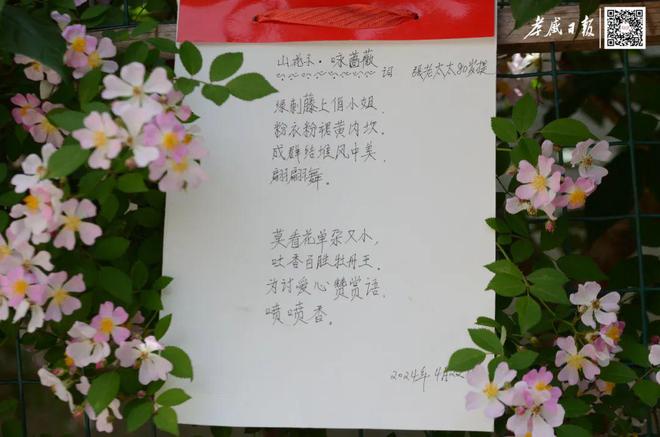 孝感日报
山花子·咏蔷薇
词 張老太太80岁提
绿刺藤上俏小姐,
粉衣粉裙黄内坎.
成群结堆风中美,
翩翩舞。
莫看花单朵又小,
吐香百胜牡丹王.
为讨爱心赞赏语,
喷喷香。
2024年4月22